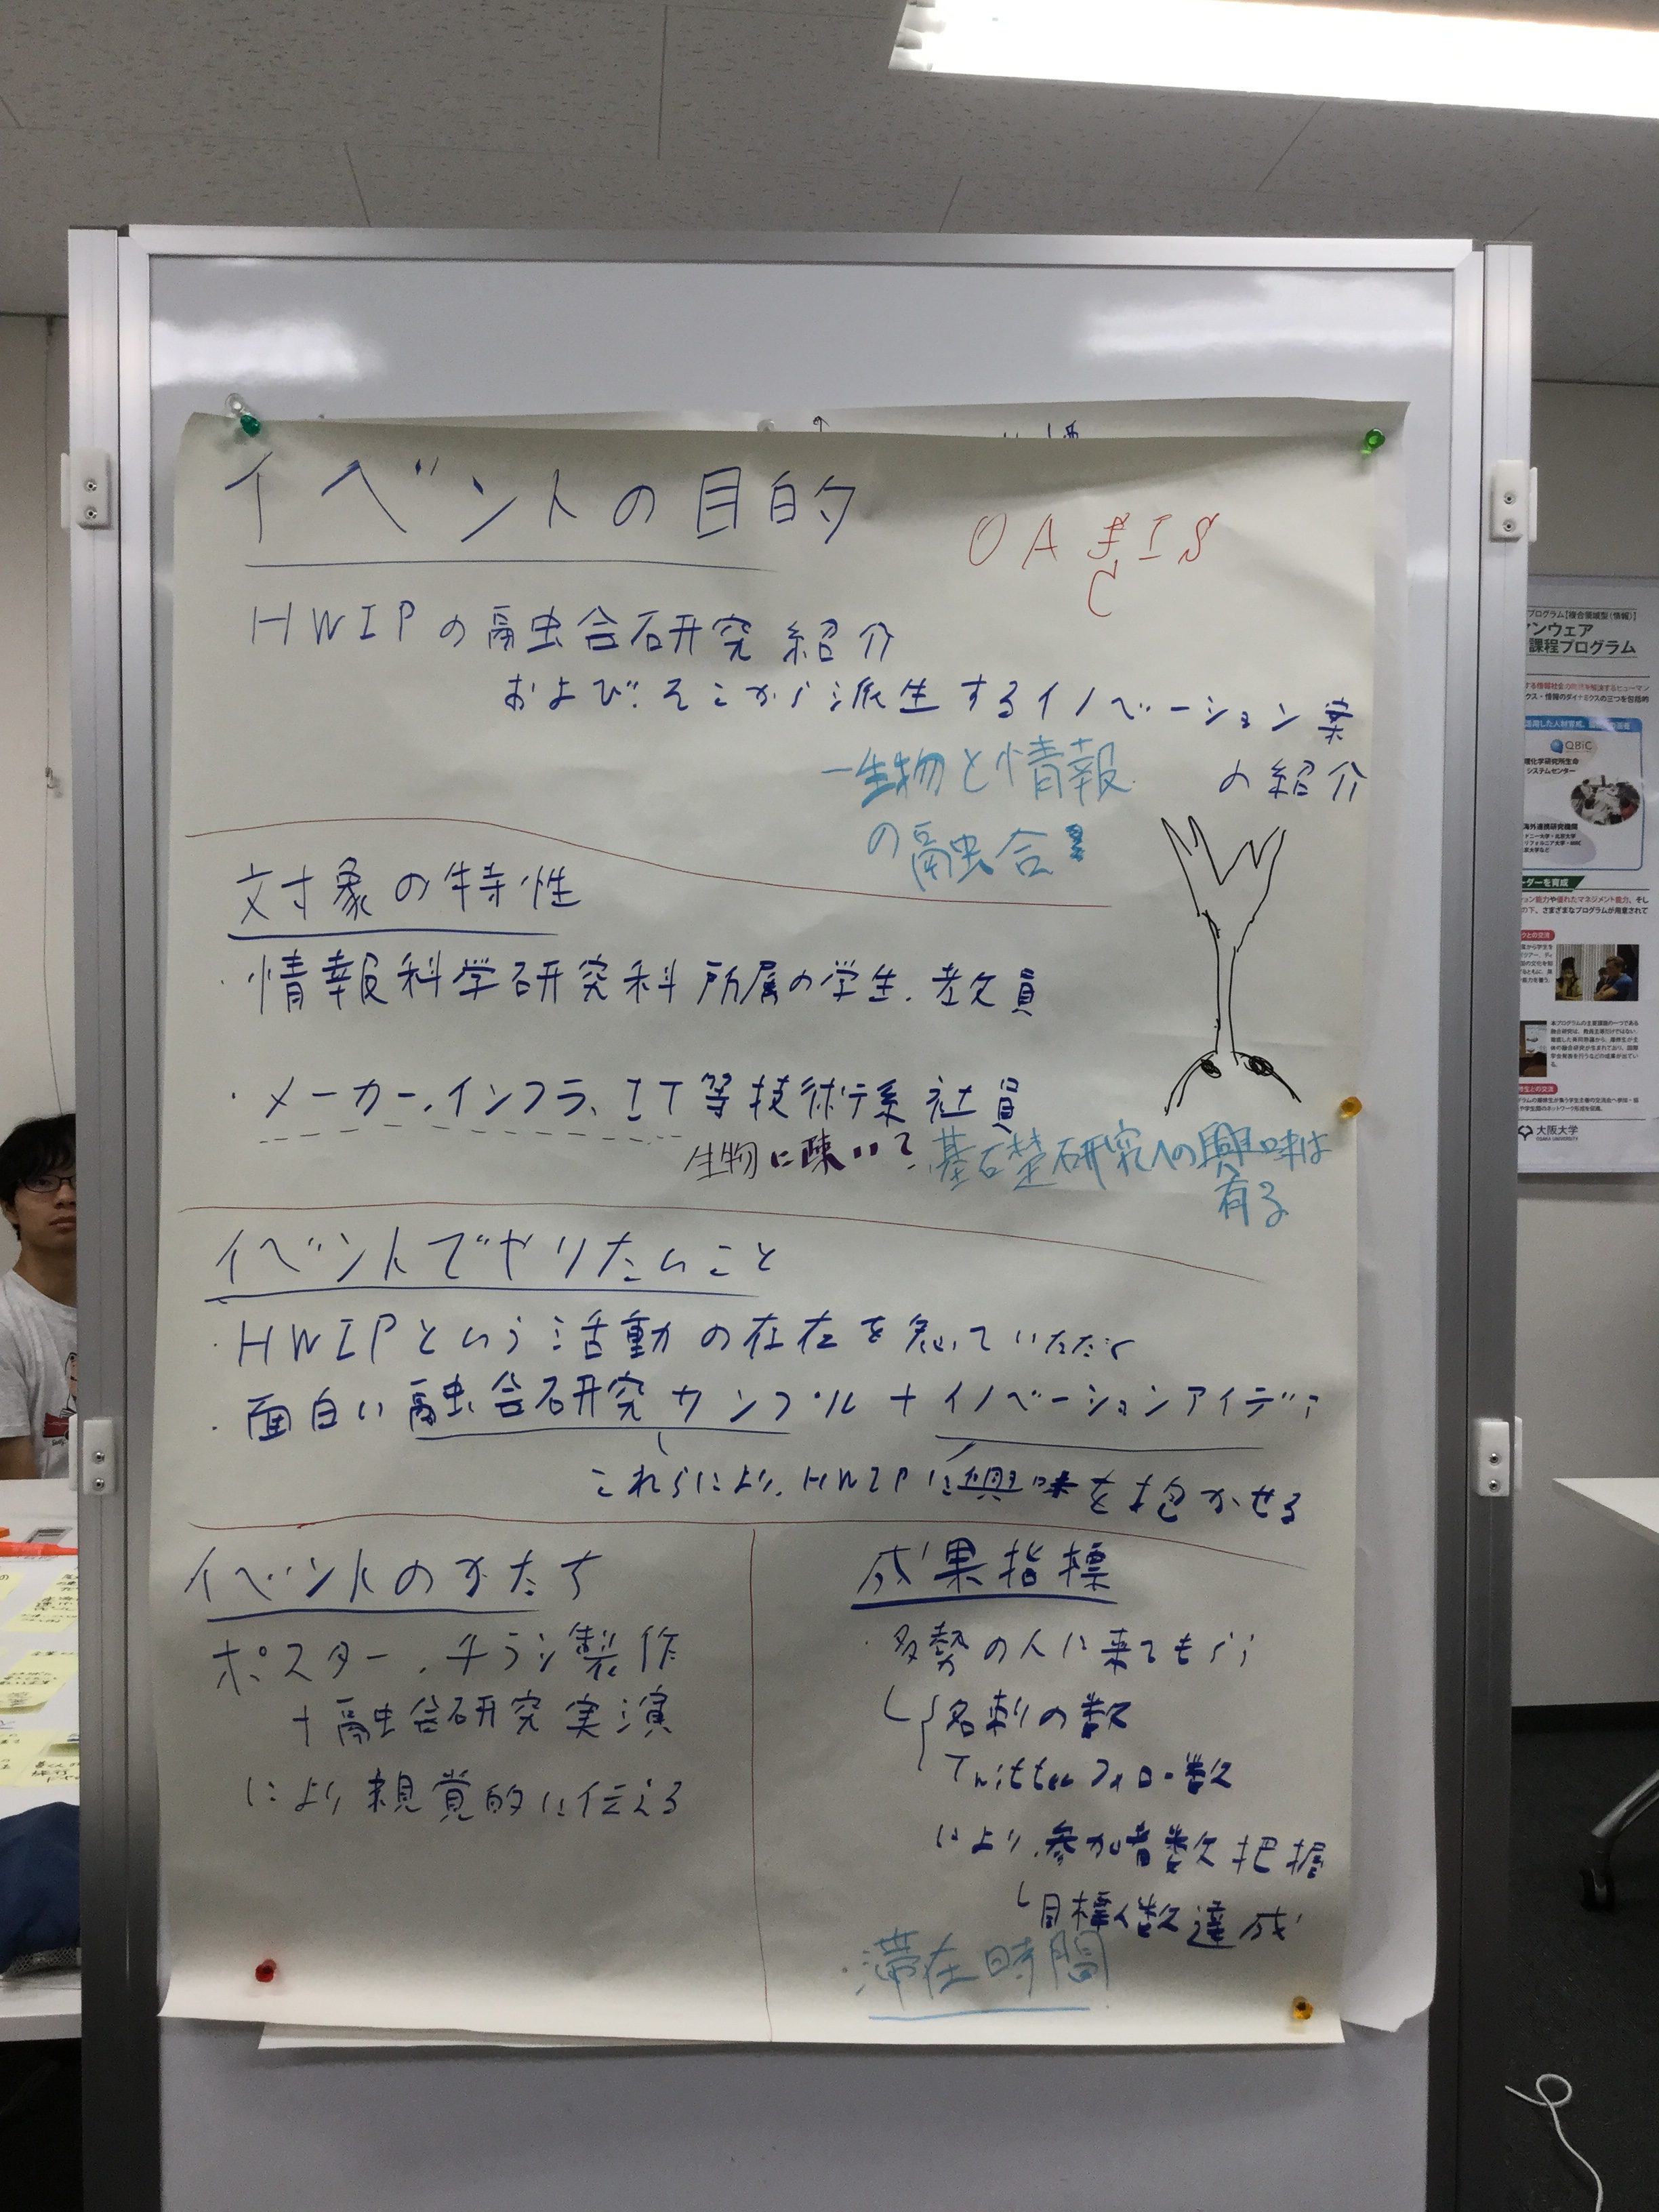 イベントの目的
OA
C
IS
HWIPの融合研究紹介
およびそこから派生するイノベーション案
の紹介
生物と情報
の融合
対象の特性
・情報科学研究科所属の学生、教員
・メーカー、インフラ、IT等技術系社員
生物に疎いて、基礎研究への興味は
有る
イベントでやりたいこと
・HWIPという活動の存在を知っていただく
・面白い融合研究サンプル+イノベーションアイディア
これらにより、HWIPに興味を抱かせる
イベントのかたち
ポスター、チラシ製作
+融合研究実演
により視覚的に伝える
成果指標
・多勢の人に来てもらう
名刺の数
Twitterフォロー数
により、参加者数把握
目標人数達成
・滞在時間
プログラム【複合領域型(情報)】
ンウェア
課程プログラム
QBiC
理化学研究所生命
システムセンター
海外連携研究機関
ーダーを育成
大阪大学
OSAKA UNIVERSITY